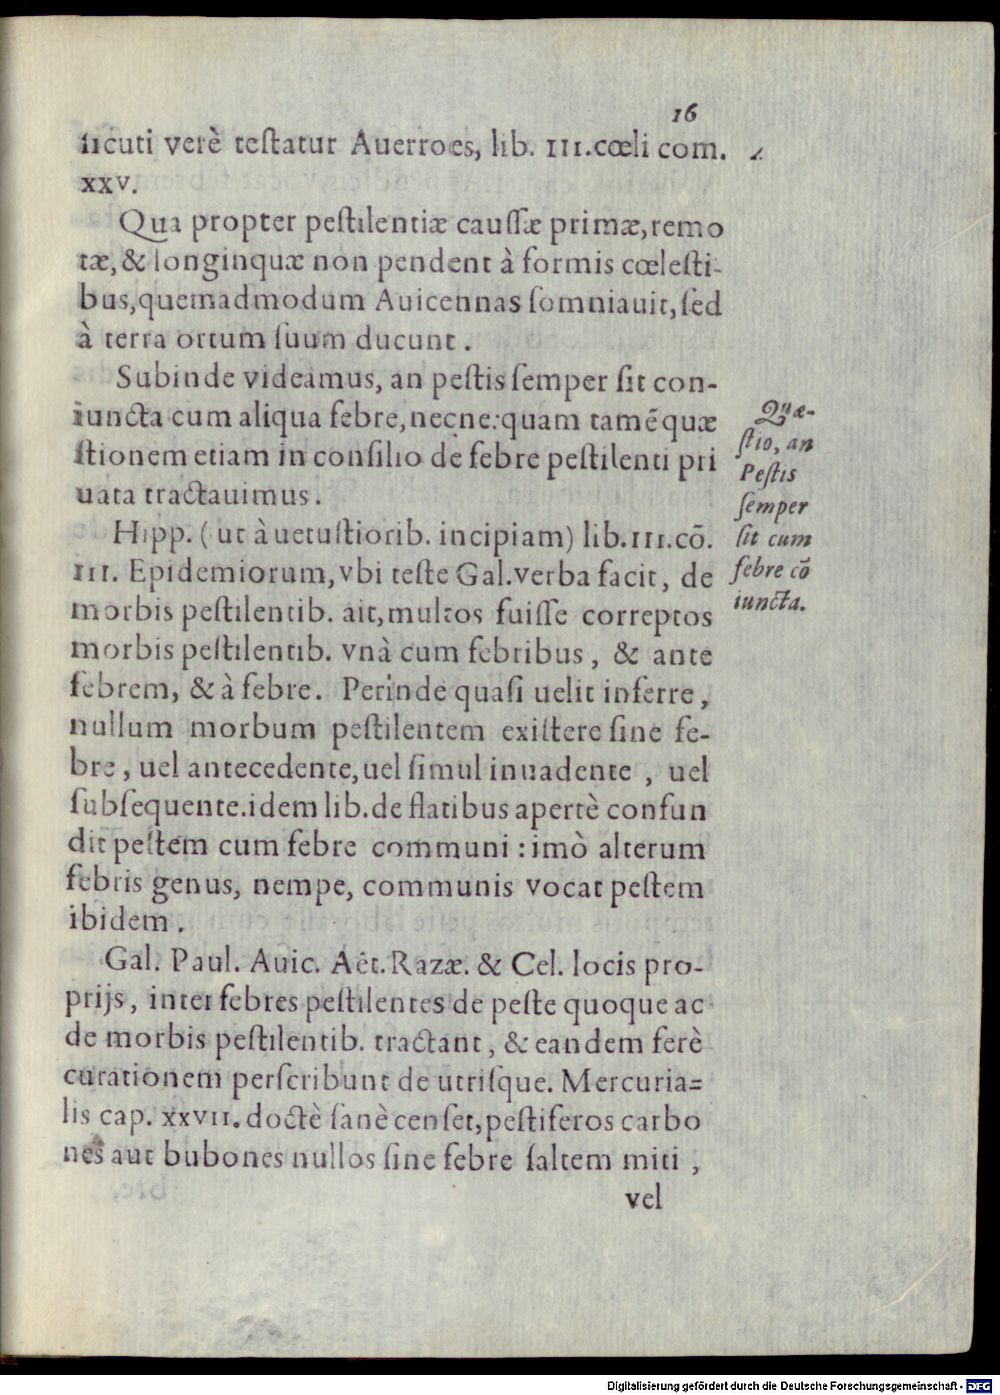 16
ſicuti verè teſtatur Auerroes, lib. III. cœli com.
XXV.
Qua propter peſtilentiæ cauſſæ primæ, remo
tæ, & longinquæ non pendent à formis cœleſti-
bus, quemadmodum Auicennas ſomniauit, ſed
à terra ortum ſuum ducunt.
Subinde videamus, an peſtis ſemper ſit con-
iuncta cum aliqua febre, necne: quam tamē quæ
ſtionem etiam in conſilio de febre peſtilenti pri
uata tractauimus.
Quæ-
ſtio, an
Peſtis
ſemper
ſit cum
febre cō
iuncta.
Hipp. (ut à uetuſtiorib. incipiam) lib. III. cō.
III. Epidemiorum, vbi teſte Gal. verba facit, de
morbis peſtilentib. ait, multos fuiſſe correptos
morbis peſtilentib. vnà cum febribus, & ante
febrem, & à febre. Perinde quaſi uelit inferre,
nullum morbum peſtilentem exiſtere ſine fe-
bre, uel antecedente, uel ſimul inuadente, uel
ſubſequente. idem lib. de flatibus apertè confun
dit peſtem cum febre communi: imò alterum
febris genus, nempe, communis vocat peſtem
ibidem.
Gal. Paul. Auic. Aët. Razæ. & Cel. locis pro-
prijs, inter febres peſtilentes de peſte quoque ac
de morbis peſtilentib. tractant, & eandem ferè
curationem perſcribunt de utriſque. Mercuria=
lis cap. XXVII. doctè ſanè cenſet, peſtiferos carbo
nes aut bubones nullos ſine febre ſaltem miti,
vel
Digitalisierung gefördert durch die Deutsche Forschungsgemeinschaft - DFG